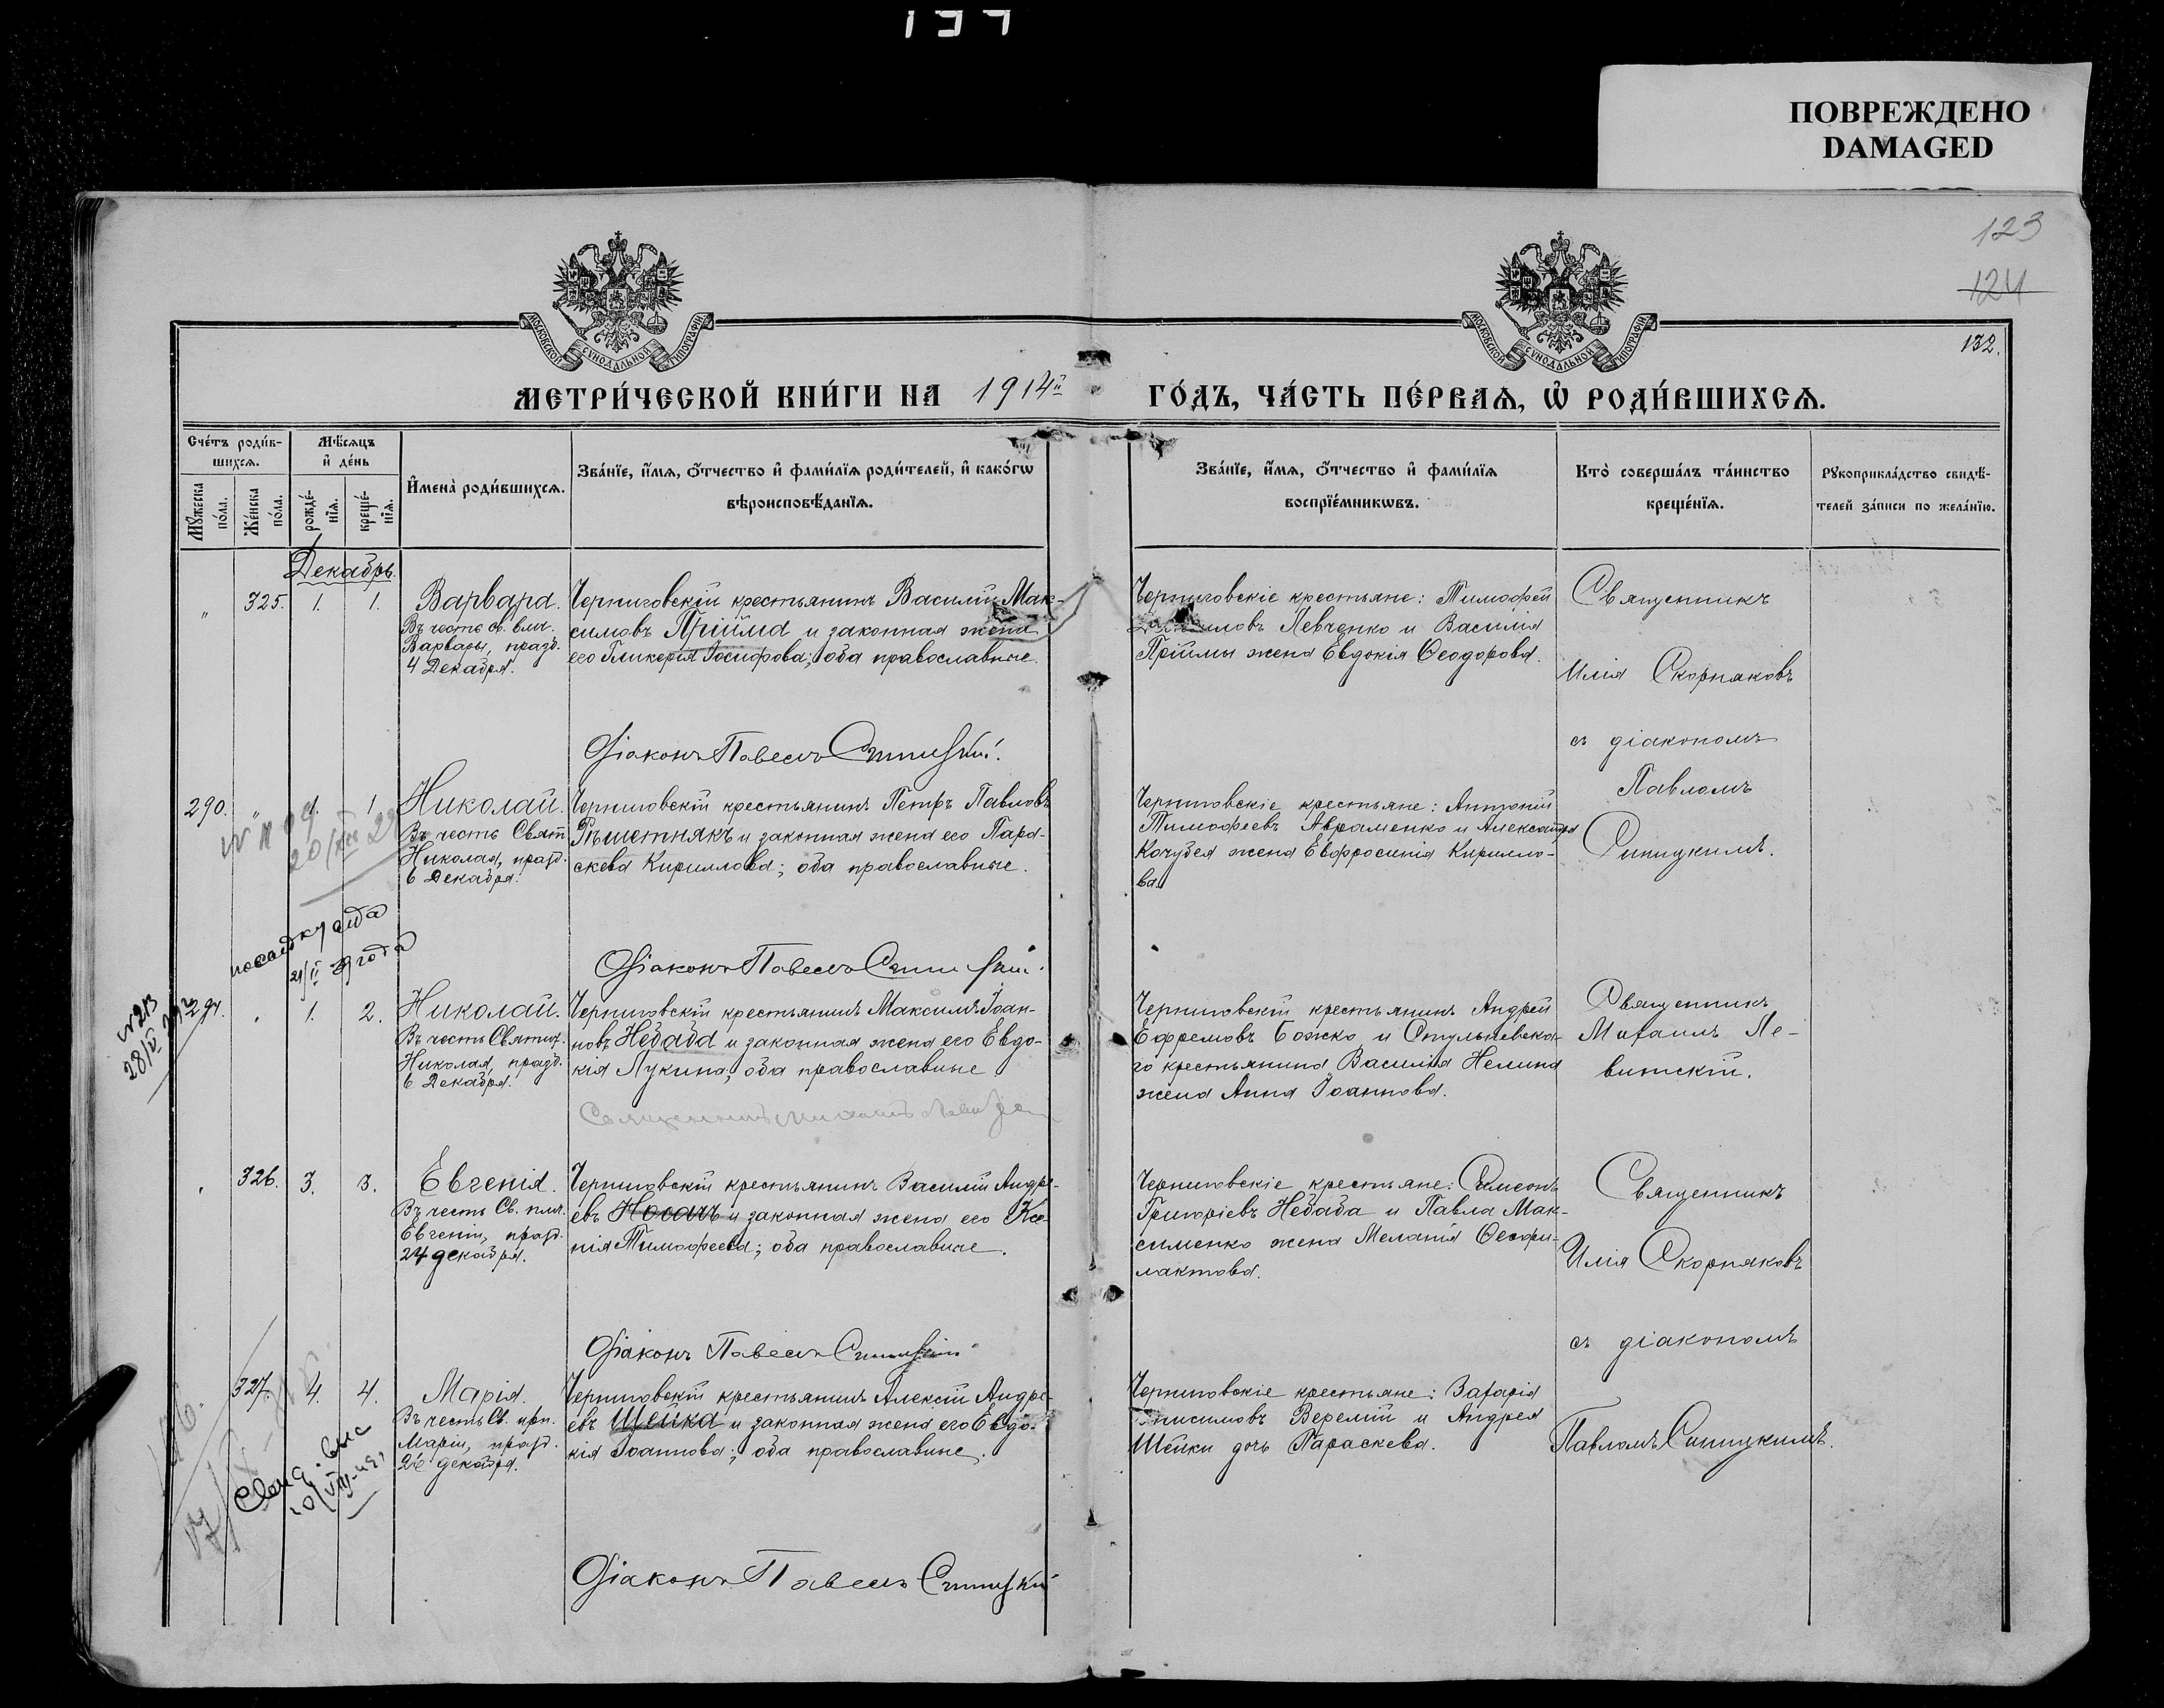 ПОВРЕЖДЕНО
DAMAGED
123
124
132.
МОСКОВСКОЙ СѴНОДАЛЬНОЙ ТИПОГРАФІИ
МОСКОВСКОЙ СѴНОДАЛЬНОЙ ТИПОГРАФІИ
МЕТРИ́ЧЕСКОЙ КНИ́ГИ НА 1914й ГО́ДЪ, ЧА́СТЬ ПЕ́РВАѦ, Ѡ҆ РОДИ́ВШИХСѦ.
Сче́тъ роди́в-
шихсѧ.
Мꙋ́жеска
по́ла.
Же́нска
по́ла.
Мѣ́сѧцъ
и҆ де́нь
рожде́-
нїѧ.
креще́-
нїѧ.
И҆мена̀ роди́вшихсѧ.
Зва́нїе, и҆́мѧ, ѻ҆́тчество и҆ фами́лїѧ роди́телей, и҆ како́гѡ
вѣроисповѣ́данїѧ.
Зва́нїе, и҆́мѧ, ѻ҆́тчество и҆ фами́лїѧ
воспрїе́мникѡвъ.
Кто̀ соверша́лъ та́инство
креще́нїѧ.
Рꙋкоприкла́дство свидѣ́-
телей за́писи по жела́нїю.
Декабрь.
" 325. 1. 1.
Варвара.
Въ честь св. влм.
Варвары, празд.
4 Декабря.
Черниговскій крестьянинъ Василій Мак-
симовъ Прійма и законная жена
его Гликерія Іосифова; оба православные.
Діаконъ Павелъ Синицкій.
Черниговскіе крестьяне: Тимофей
Левченко и Василія
Пріймы жена Евдокія Ѳеодорова.
Священникъ
Илія Скорняковъ
съ діакономъ
Павломъ
Синицкимъ.
290. " 1. 1
Николай.
Въ честь Свят.
Николая, празд.
6 Декабря.
20/XII 29
Черниговскій крестьянинъ Петръ Павловъ
Рѣшетнякъ и законная жена его Пара-
скева Кириллова; оба православные.
Діаконъ Павелъ Синицкій.
Черниговскіе крестьяне: Антоній
Тимофеевъ Авраменко и Александра
Кочубея жена Евфросинія Кирилло-
ва.
21/II 39 года
№ 213
28/IV
291. " 1. 2.
Николай.
Въ честь Святит.
Николая, празд.
6 Декабря.
Черниговскій крестьянинъ Максимъ Іоан-
новъ Небаба и законная жена его Евдо-
кія Лукина; оба православные
Священникъ Михаилъ
Черниговскій крестьянинъ Андрей
Ефремовъ Божко и Стульневска-
го крестьянина Василія Нелина
жена Анна Іоаннова.
Священникъ
Михаилъ Ле-
витскій.
" 326. 3. 3.
Евгенія.
Въ честь Св. прм.
Евгеніи, празд.
24 декабря.
Черниговскій крестьянинъ Василій Андре-
евъ Носачъ и законная жена его Ксе-
нія Тимофеева; оба православные.
Діаконъ Павелъ Синицкій
Черниговскіе крестьяне: Симеонъ
Григоріевъ Небаба и Павла Мак-
сименко жена Меланія Ѳеофи-
лактова.
Священникъ
Илія Скорняковъ
съ діакономъ
Павломъ Синицкимъ.
" 327. 4. 4.
Марія.
Въ честь Св. прп.
Маріи, празд.
26 декабря.
Черниговскій крестьянинъ Алексій Андре-
евъ Шейка и законная жена его Евдо-
кія Іоаннова; оба православные.
Діаконъ Павелъ Синицкій
Черниговскіе крестьяне: Захарія
Онисимовъ Веремій и Андрея
Шейки дочь Параскева.